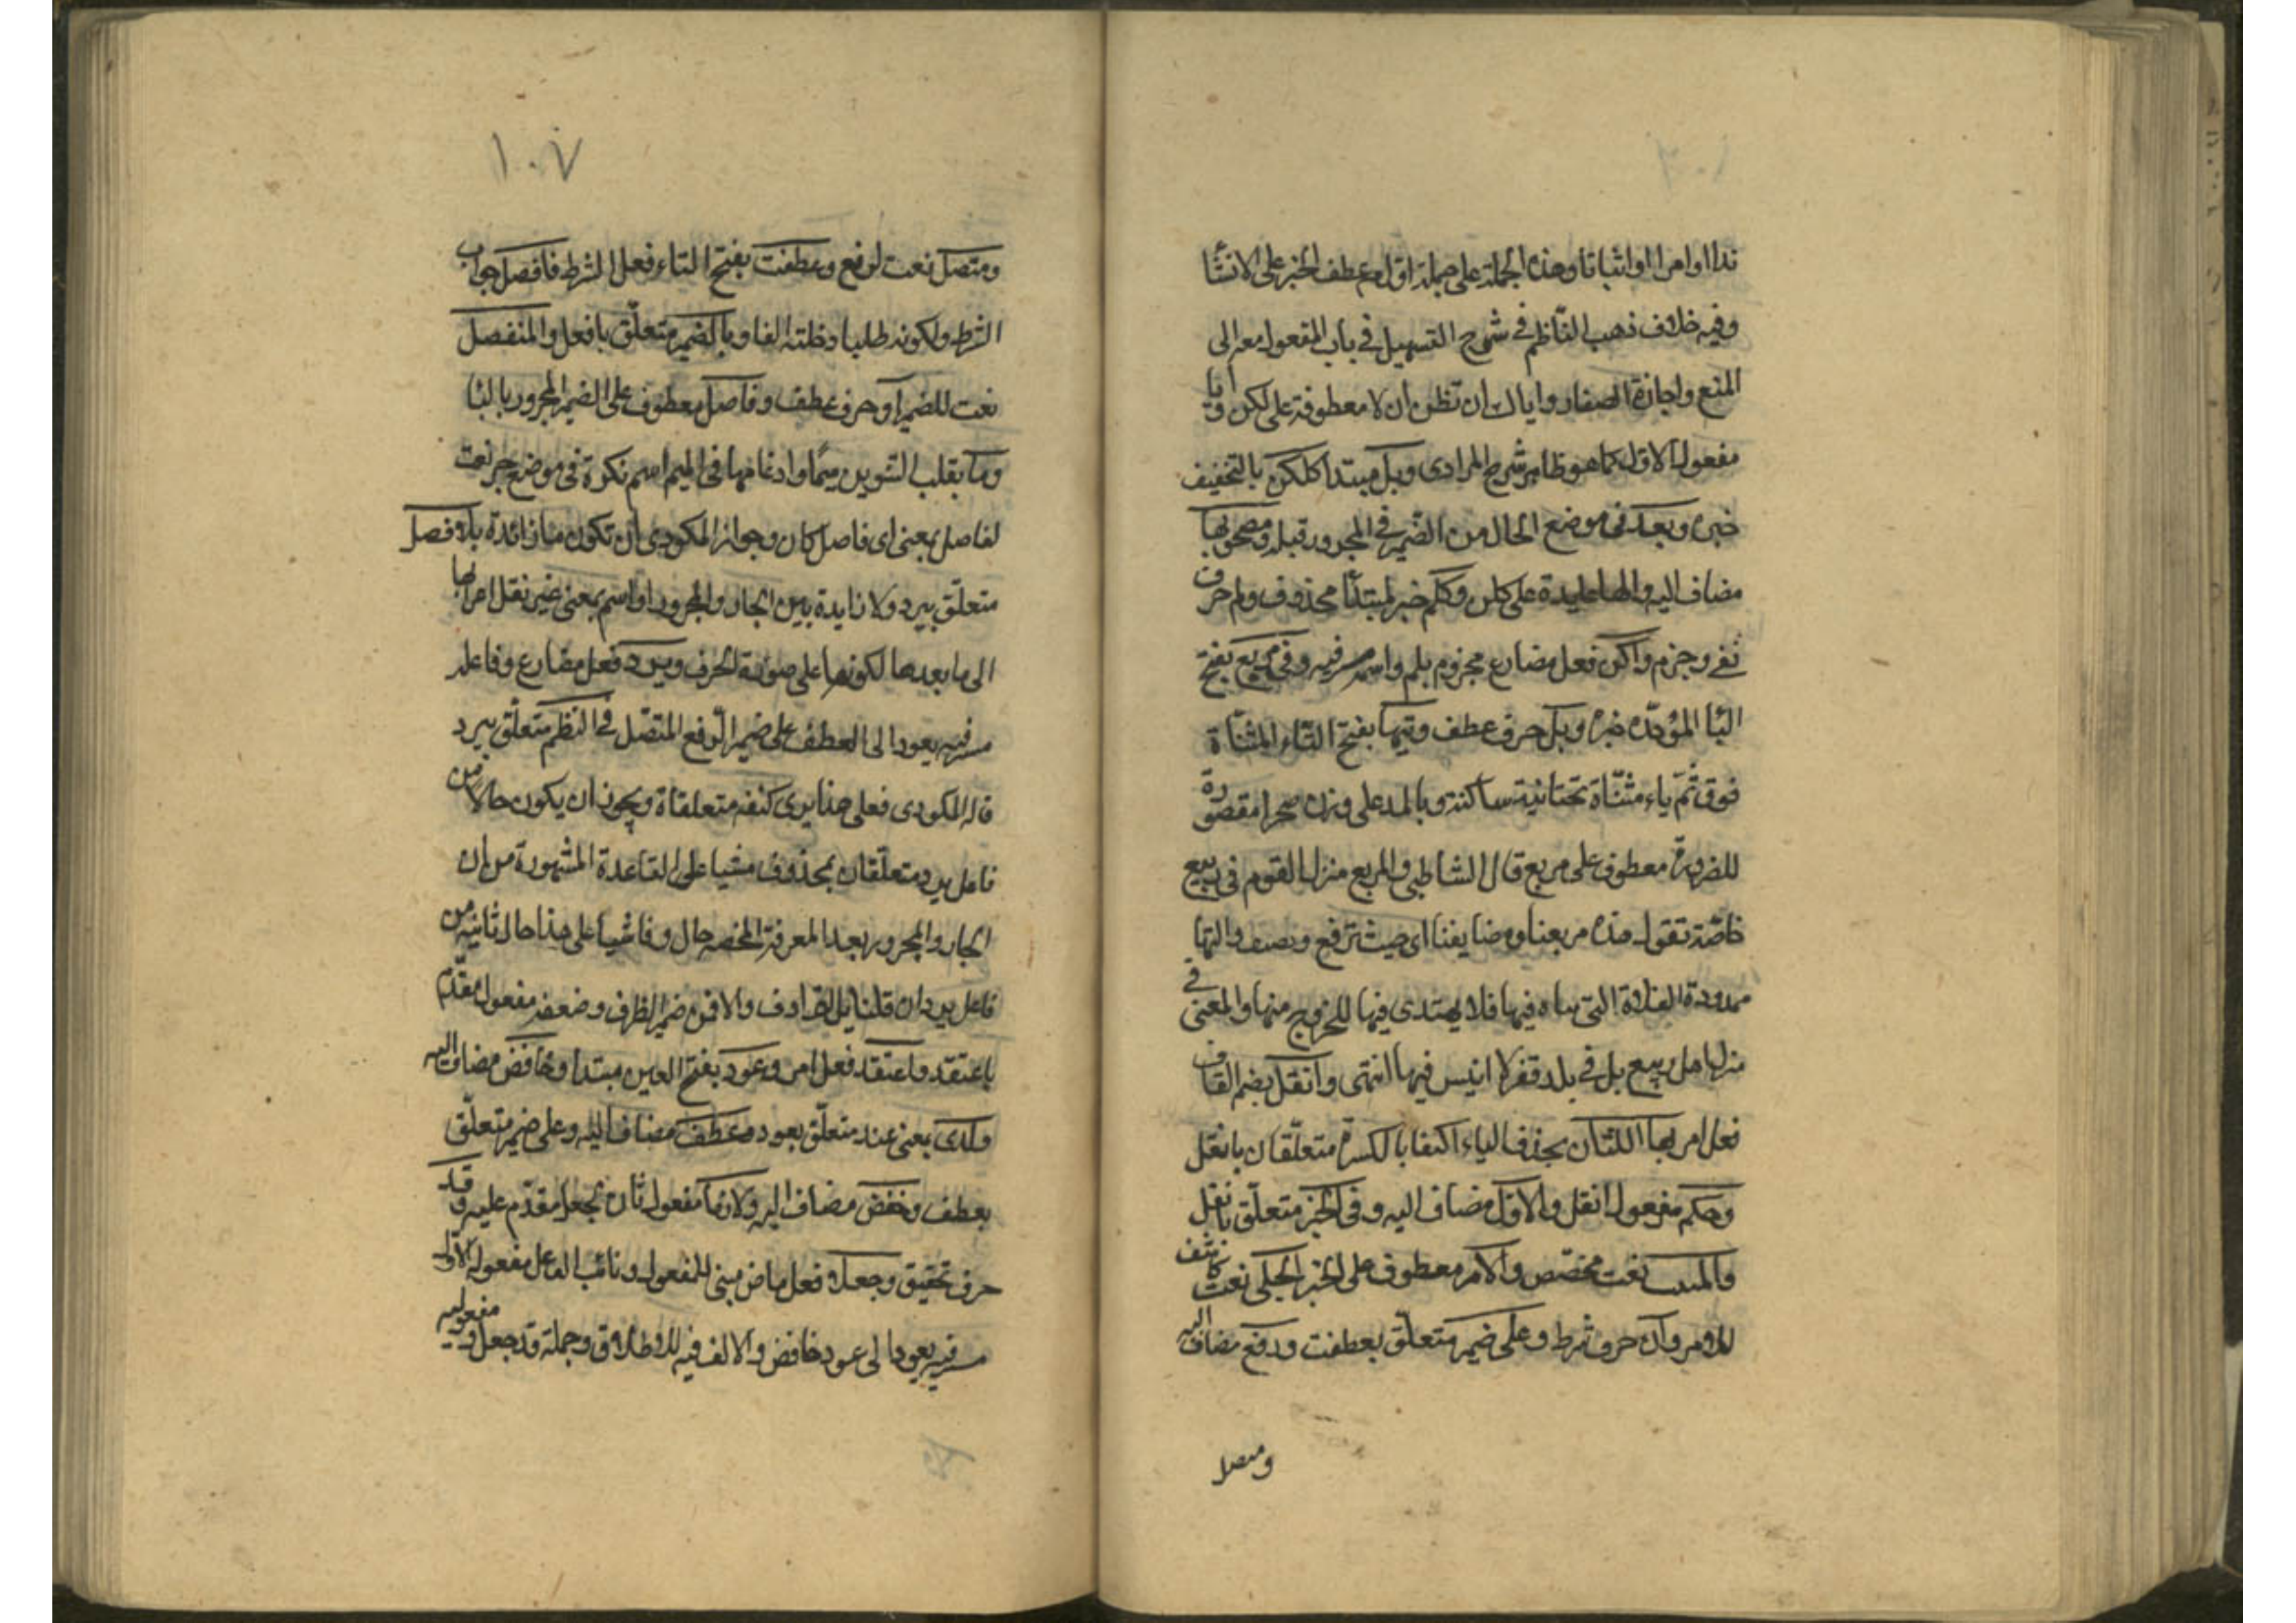 نداا وامرا او اثباتا وهذه الجملة على جملة اول مع عطف الخبر على الانشا
وفيه خلاف ذهب الناظم في شرح التسهيل في باب المفعول معه الى
المنع واجازة الصفار واياك ان تظن ان لا معطوفة على لكن ويا
مفعول الاول كما هو ظاهر شرح المرادى وبل مبتدا كلكن بالتخفيف
خبره وبعد في موضع الحال من الضمير في المجرور قبله ومصحوبها
مضاف اليه والها عايدة على كلن وكلم خبر لمبتدأ محذوف ولم حرف
نفي وجزم واكن فعل مضارع مجزوم بلم واسمه مستتر فيه وفي مربع بفتح
البا الموحدة خبره وبل حرف عطف وتيها بفتح التاء المثناة
فوق ثم ياء مثناة تحتانية ساكنة وبالمد على وزن صحرا مقصورة
للضرورة معطوف على مربع قال الشاطبي والمربع منزل القوم في ربيع
خاصة تقول هذه مربعنا ومضايفنا اى حيث نرتفع ونصيف والتيها
ممدودة الفلاة التي يتاه فيها فلا يهتدى فيها للخروج منها والمعنى في
منزل اهل ربيع بل في بلد قفر لا انيس فيها انتهى وانقل بضم القاف
فعل امر بها اللثان بحذف الياء اكتفا بالكسرة متعلقان بانقل
وحكم مفعول انقل والاول مضاف اليه وفي الخبر متعلق بانقل
والمثبت نعت مخصص والامر معطوف على الخبر الجلى نعت كاشف
للامر وان حرف شرط وعلى ضمير متعلق بعطفت ورفع مضاف اليه
ومتصل
١٠٧
ومتصل نعت لرفع وعطفت بفتح التاء فعل الشرط فافصل جواب
الشرط ولكونه طلبا دخلته الفا وبالضمير متعلق بافعل والمنفصل
نعت للضمير او حرف عطف وفاصل معطوف على الضمير المجرور بالبا
وما بقلب التنوين ميما وادغامها في الميم اسم نكرة في موضع جر نعت
لفاصل بمعنى اى فاصل كان وجواز المكودى ان تكون ما زائدة بلا فصل
متعلق بيرد ولا زايدة بين الجار والمجرور او اسم بمعنى غير نقل اعرابها
الى ما بعدها لكونها على صورة الحرف ويرد فعل مضارع وفاعله
مستتر فيه يعود الى العطف على ضمير الرفع المتصل في النظم متعلق بيرد
قاله المكودى فعلى هذا يرى كنفه متعلقاة ويجوز ان يكون حالا من
فاعل يرد متعلقان بمحذوف مشيا على القاعدة المشهورة من ان
الجار والمجرور بعد المعرفة المحضه حال وفاشيا على هذا حال ثانيه من
فاعل يرد ان قلنا بالترادف والا فمن ضمير الظرف وضعفه مفعول مقدم
باعتقد واعتقد فعل امر وعود بفتح العين مبتدا وخافض مضاف اليه
ولدى بمعنى عند متعلق بعود وعطف مضاف اليه وعلى ضمير متعلق
بعطف وخفض مضاف اليه ولازما مفعول ثان بجعل مقدم عليه وقد
حرف تحقيق وجعلا فعل ماض مبنى للمفعول ونائب الفاعل مفعوله الاول
مستتر فيه يعود الى عود خافض والالف فيه للاطلاق وجملة قد جعل ومفعوليه